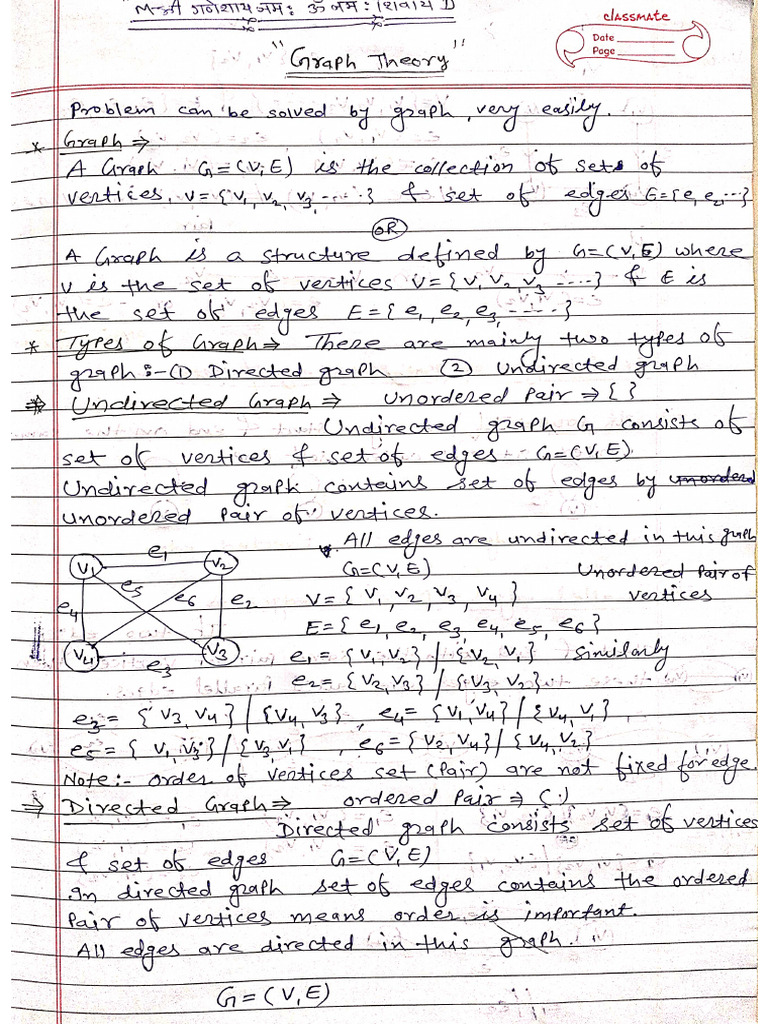 श्री गणेशाय नमः ॐ नमः शिवाय
classmate
Date
Page
"Graph Theory"
Problem can be solved by graph, very easily.
* Graph ⇒
A Graph G=(V,E) is the collection of sets of
vertices, V={V1, V2, V3, ....} & set of edges E={e1, e2...}
OR
A Graph is a structure defined by G=(V,E) where
V is the set of vertices V={V1, V2, V3 .....} & E is
the set of edges E={e1, e2, e3, .....}
* Types of Graph ⇒ There are mainly two types of
graph :- (1) Directed graph (2) Undirected graph
⇒ Undirected Graph ⇒ Unordered Pair ⇒ { }
Undirected graph G consists of
set of vertices & set of edges G=(V,E).
Undirected graph contains set of edges by unordered
unordered Pair of vertices.
All edges are undirected in this graph
G=(V,E) Unordered Pair of
vertices
V={V1, V2, V3, V4}
E={e1, e2, e3, e4, e5, e6}
V1 e1 V2
e5
e4 e6 e2
V4 e3 V3
e1 = {V1, V2} / {V2, V1} Similarly
e2 = {V2, V3} / {V3, V2}
e3 = {V3, V4} / {V4, V3}, e4 = {V1, V4} / {V4, V1},
e5 = {V1, V3} / {V3, V1}, e6 = {V2, V4} / {V4, V2}
Note:- order of vertices set (Pair) are not fixed for edge.
⇒ Directed Graph ⇒ ordered Pair ⇒ ( )
Directed graph consists set of vertices
& set of edges G=(V,E)
In directed graph set of edges contains the ordered
Pair of vertices means order is important.
All edges are directed in this graph.
G=(V,E)